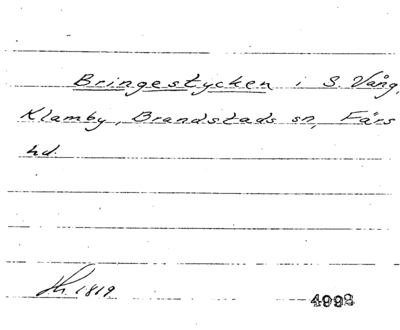 Bringestycken i S. Vång,
Klamby, Brandstads sn, Färs
hd.
Hh. 1819
4998